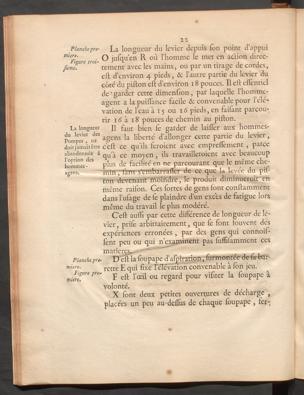 22
Planche pre-
miere.
Figure troi-
siéme.
La longueur du levier depuis son point d'appui
O jusqu'en R où l'homme le met en action direc-
tement avec les mains, ou par un tirage de cordes,
est d'environ 4 pieds, & l'autre partie du levier du
côté du piston est d'environ 18 pouces. Il est essentiel
de garder cette dimension, par laquelle l'homme-
agent a la puissance facile & convenable pour l'élé-
vation de l'eau à 15 ou 16 pieds, en faisant parcou-
rir 16 à 18 pouces de chemin au piston.
La longueur
du levier des
Pompes, ne
doit jamais être
abandonnée à
l'option des
hommes-
agens.
Il faut bien se garder de laisser aux hommes-
agens la liberté d'allonger cette partie du levier,
c'est ce qu'ils feroient avec empressement, parce
qu'à ce moyen, ils travailleroient avec beaucoup
plus de facilité en ne parcourant que le même che-
min, sans s'embarrasser de ce que la levée du pis-
ton devenant moindre, le produit diminueroit en
même raison. Ces sortes de gens sont constamment
dans l'usage de se plaindre d'un excès de fatigue lors
même du travail le plus modéré.
C'est aussi par cette différence de longueur de le-
vier, prise arbitrairement, que se sont souvent des
expériences erronées, par des gens qui connois-
sent peu ou qui n'examinent pas suffisamment ces
matieres.
Planche pre-
miere.
Figure pre-
miere.
D est la soupape d'aspiration, surmontée de sa bar-
rette E qui fixe l'élévation convenable à son jeu.
F est l'œil ou regard pour visiter la soupape à
volonté.
X sont deux petites ouvertures de décharge,
placées un peu au-dessus de chaque soupape, ser-